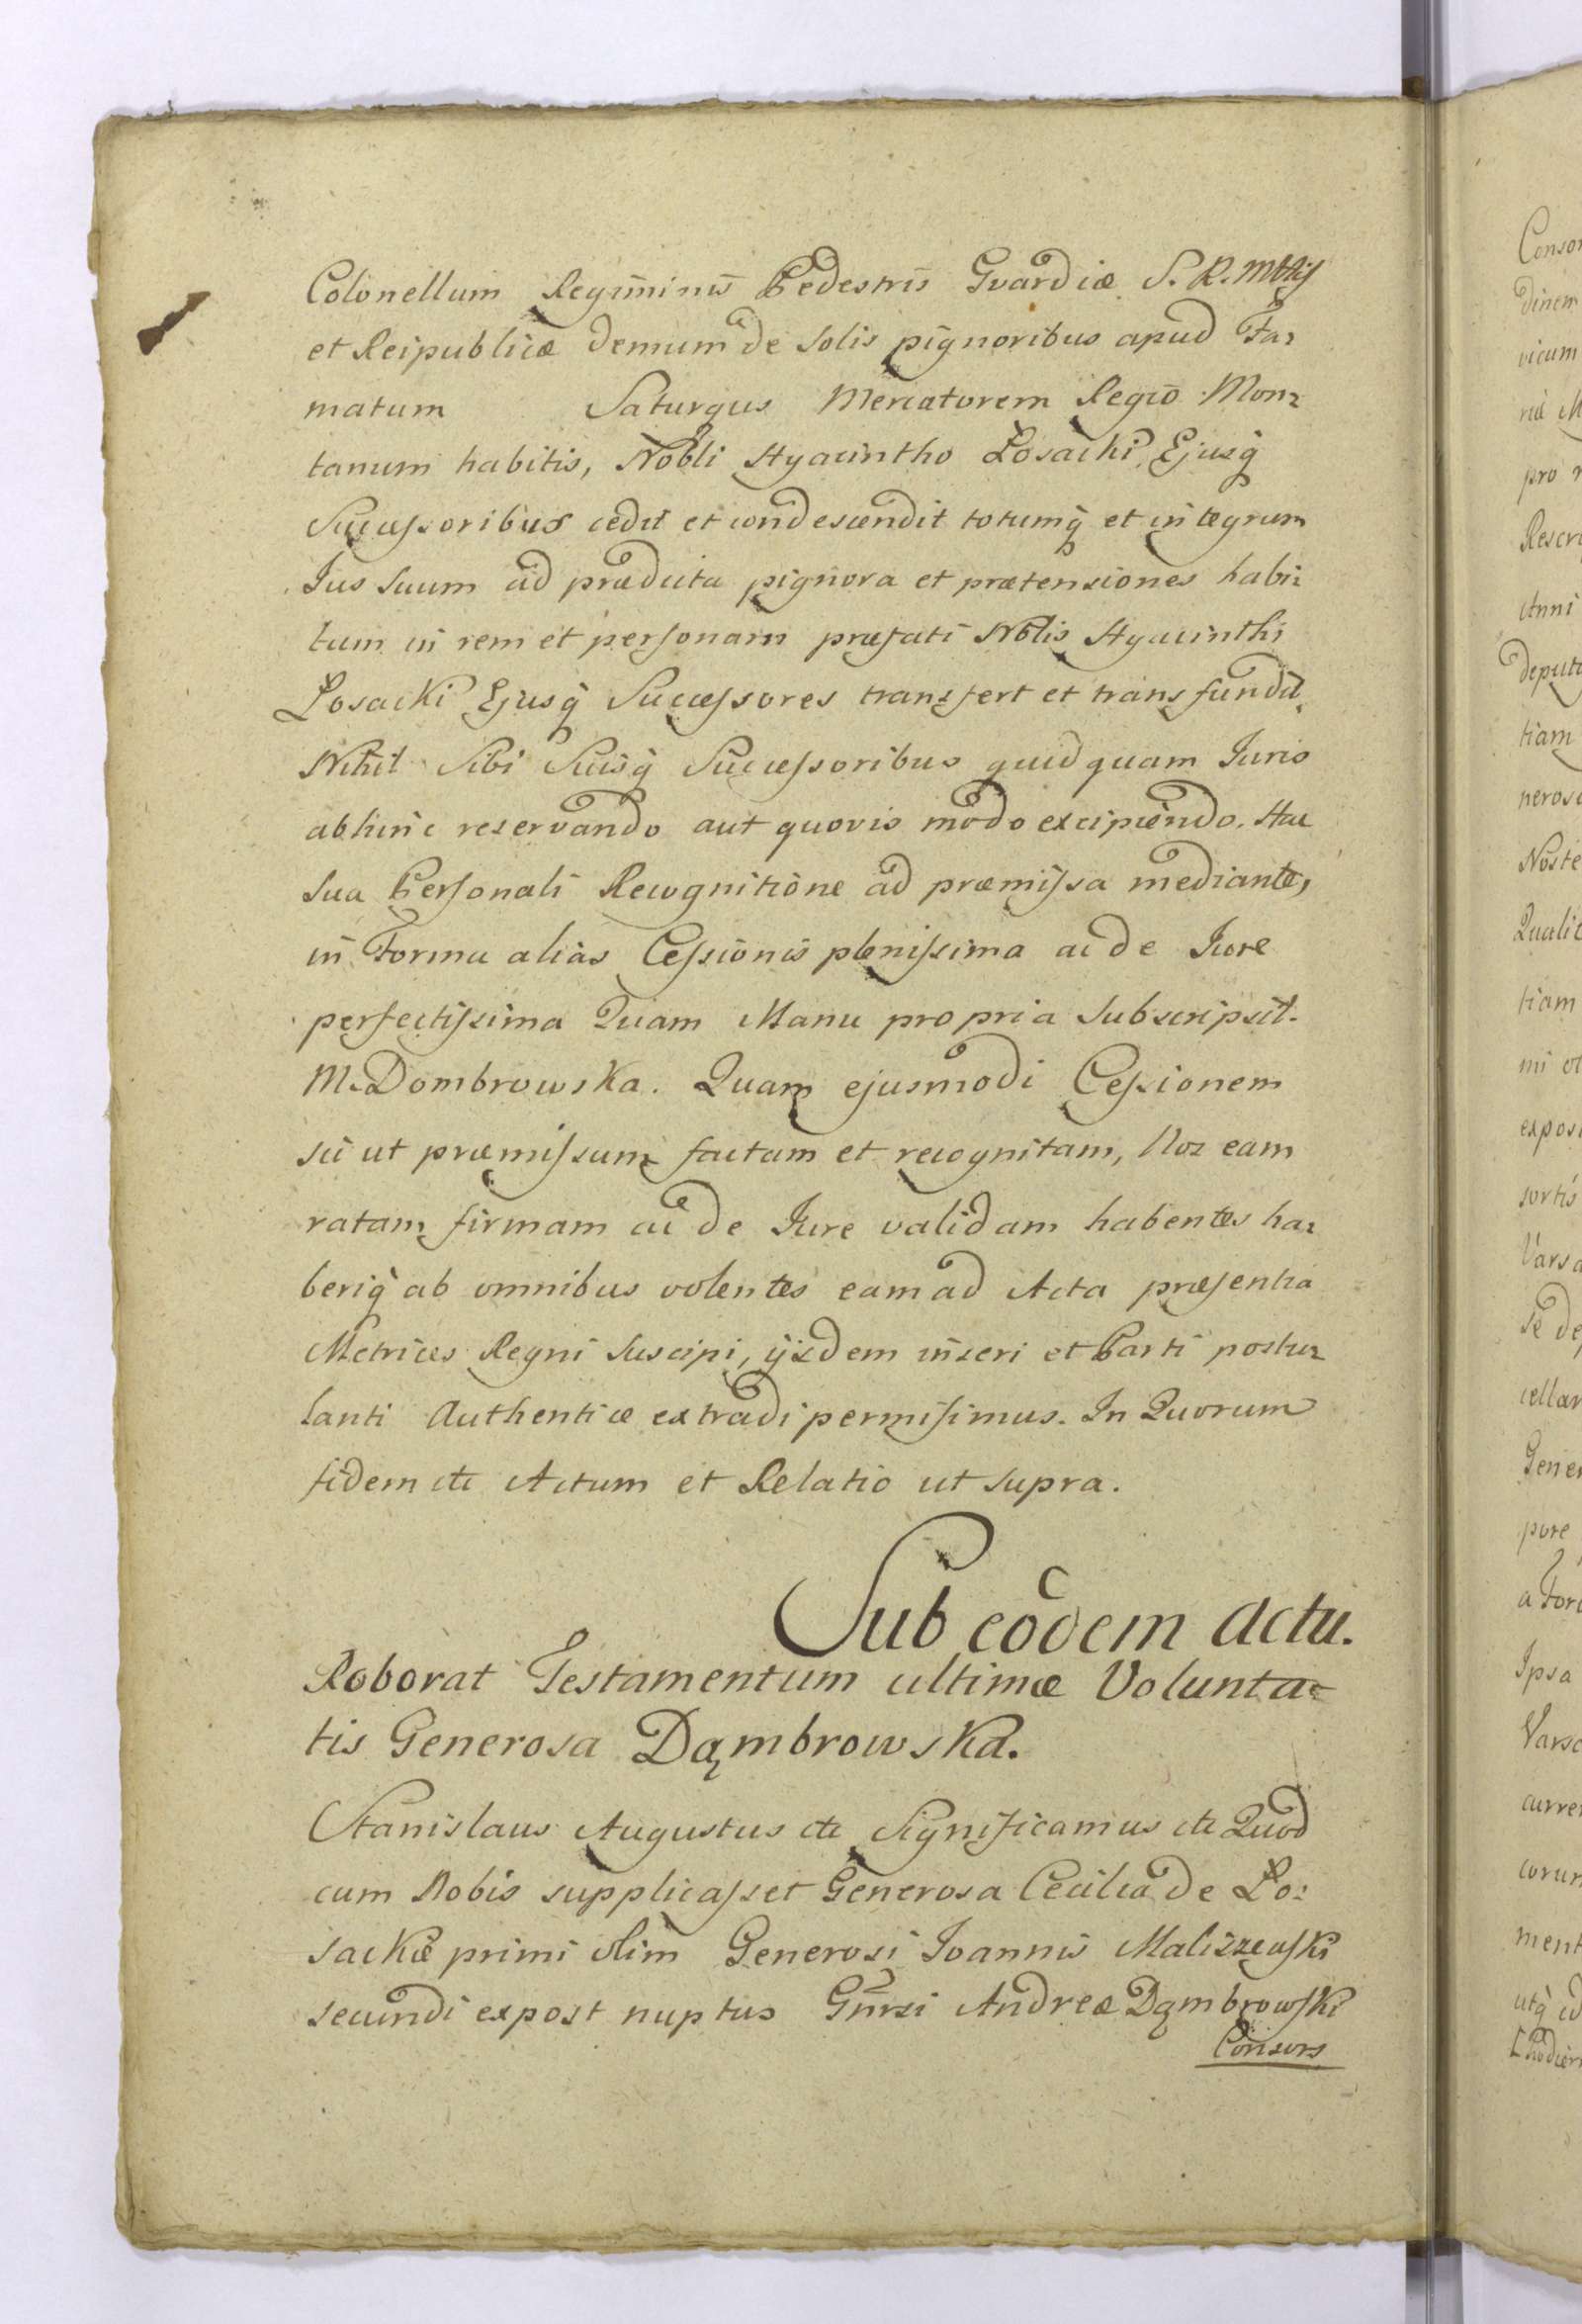 Colonellum Regiminis Pedestris Gvardiæ S. R. Mttis
et Reipublicæ demum de solis pignoribus apud Fa=
matum Saturgus Mercatorem Regio Mon=
tanum habitis, Nobli Hyacintho Łosacki Ejusq̃
Successoribus cedit et condescendit totumq̃ et integrum
Jus suum ad prædicta pignora et prætensiones habi=
tum in rem et personam præfati Nblis Hyacinthi
Łosacki Ejusq̃ Successores transfert et transfundit,
Nihil Sibi Suisq̃ Successoribus quidquam Juris
abhinc reservando aut quovis modo excipiendo. Hac
sua Personali Recognitione ad præmissa mediante,
in Forma alias Cessionis plenissima ac de Jure
perfectissima Quam Manu propria subscripsit.
M. Dombrowska. Quam ejusmodi Cessionem
sic ut præmissum factam et recognitam, Nos eam
ratam firmam ac de Jure validam habentes ha=
beriq̃ ab omnibus volentes eam ad Acta præsentia
Metrices Regni suscipi, ijsdem inseri et Parti postu=
lanti Authentice extradi permisimus. In Quorum
fidem etc Actum et Relatio ut supra.
Sub eodem actu.
Roborat Testamentum ultimæ Volunta=
tis Generosa Dąmbrowska.
Stanislaus Augustus etc Significamus etc Quod
cum Nobis supplicasset Generosa Cecilia de Ło=
sackie primi olim Generosi Joannis Maliszewski
secundi expost nuptus Gnrsi Andreæ Dąmbrowski
Consors
Conso
dinem
vicum
pro
Rescri
Anni
deputa
tiam
neros
Noste
Qualit
tiam
mi
expos
sortis
Varsa
se de
cellar
Gener
pore
a For
Ipsa
Varso
curre
corum
ment
utq̃